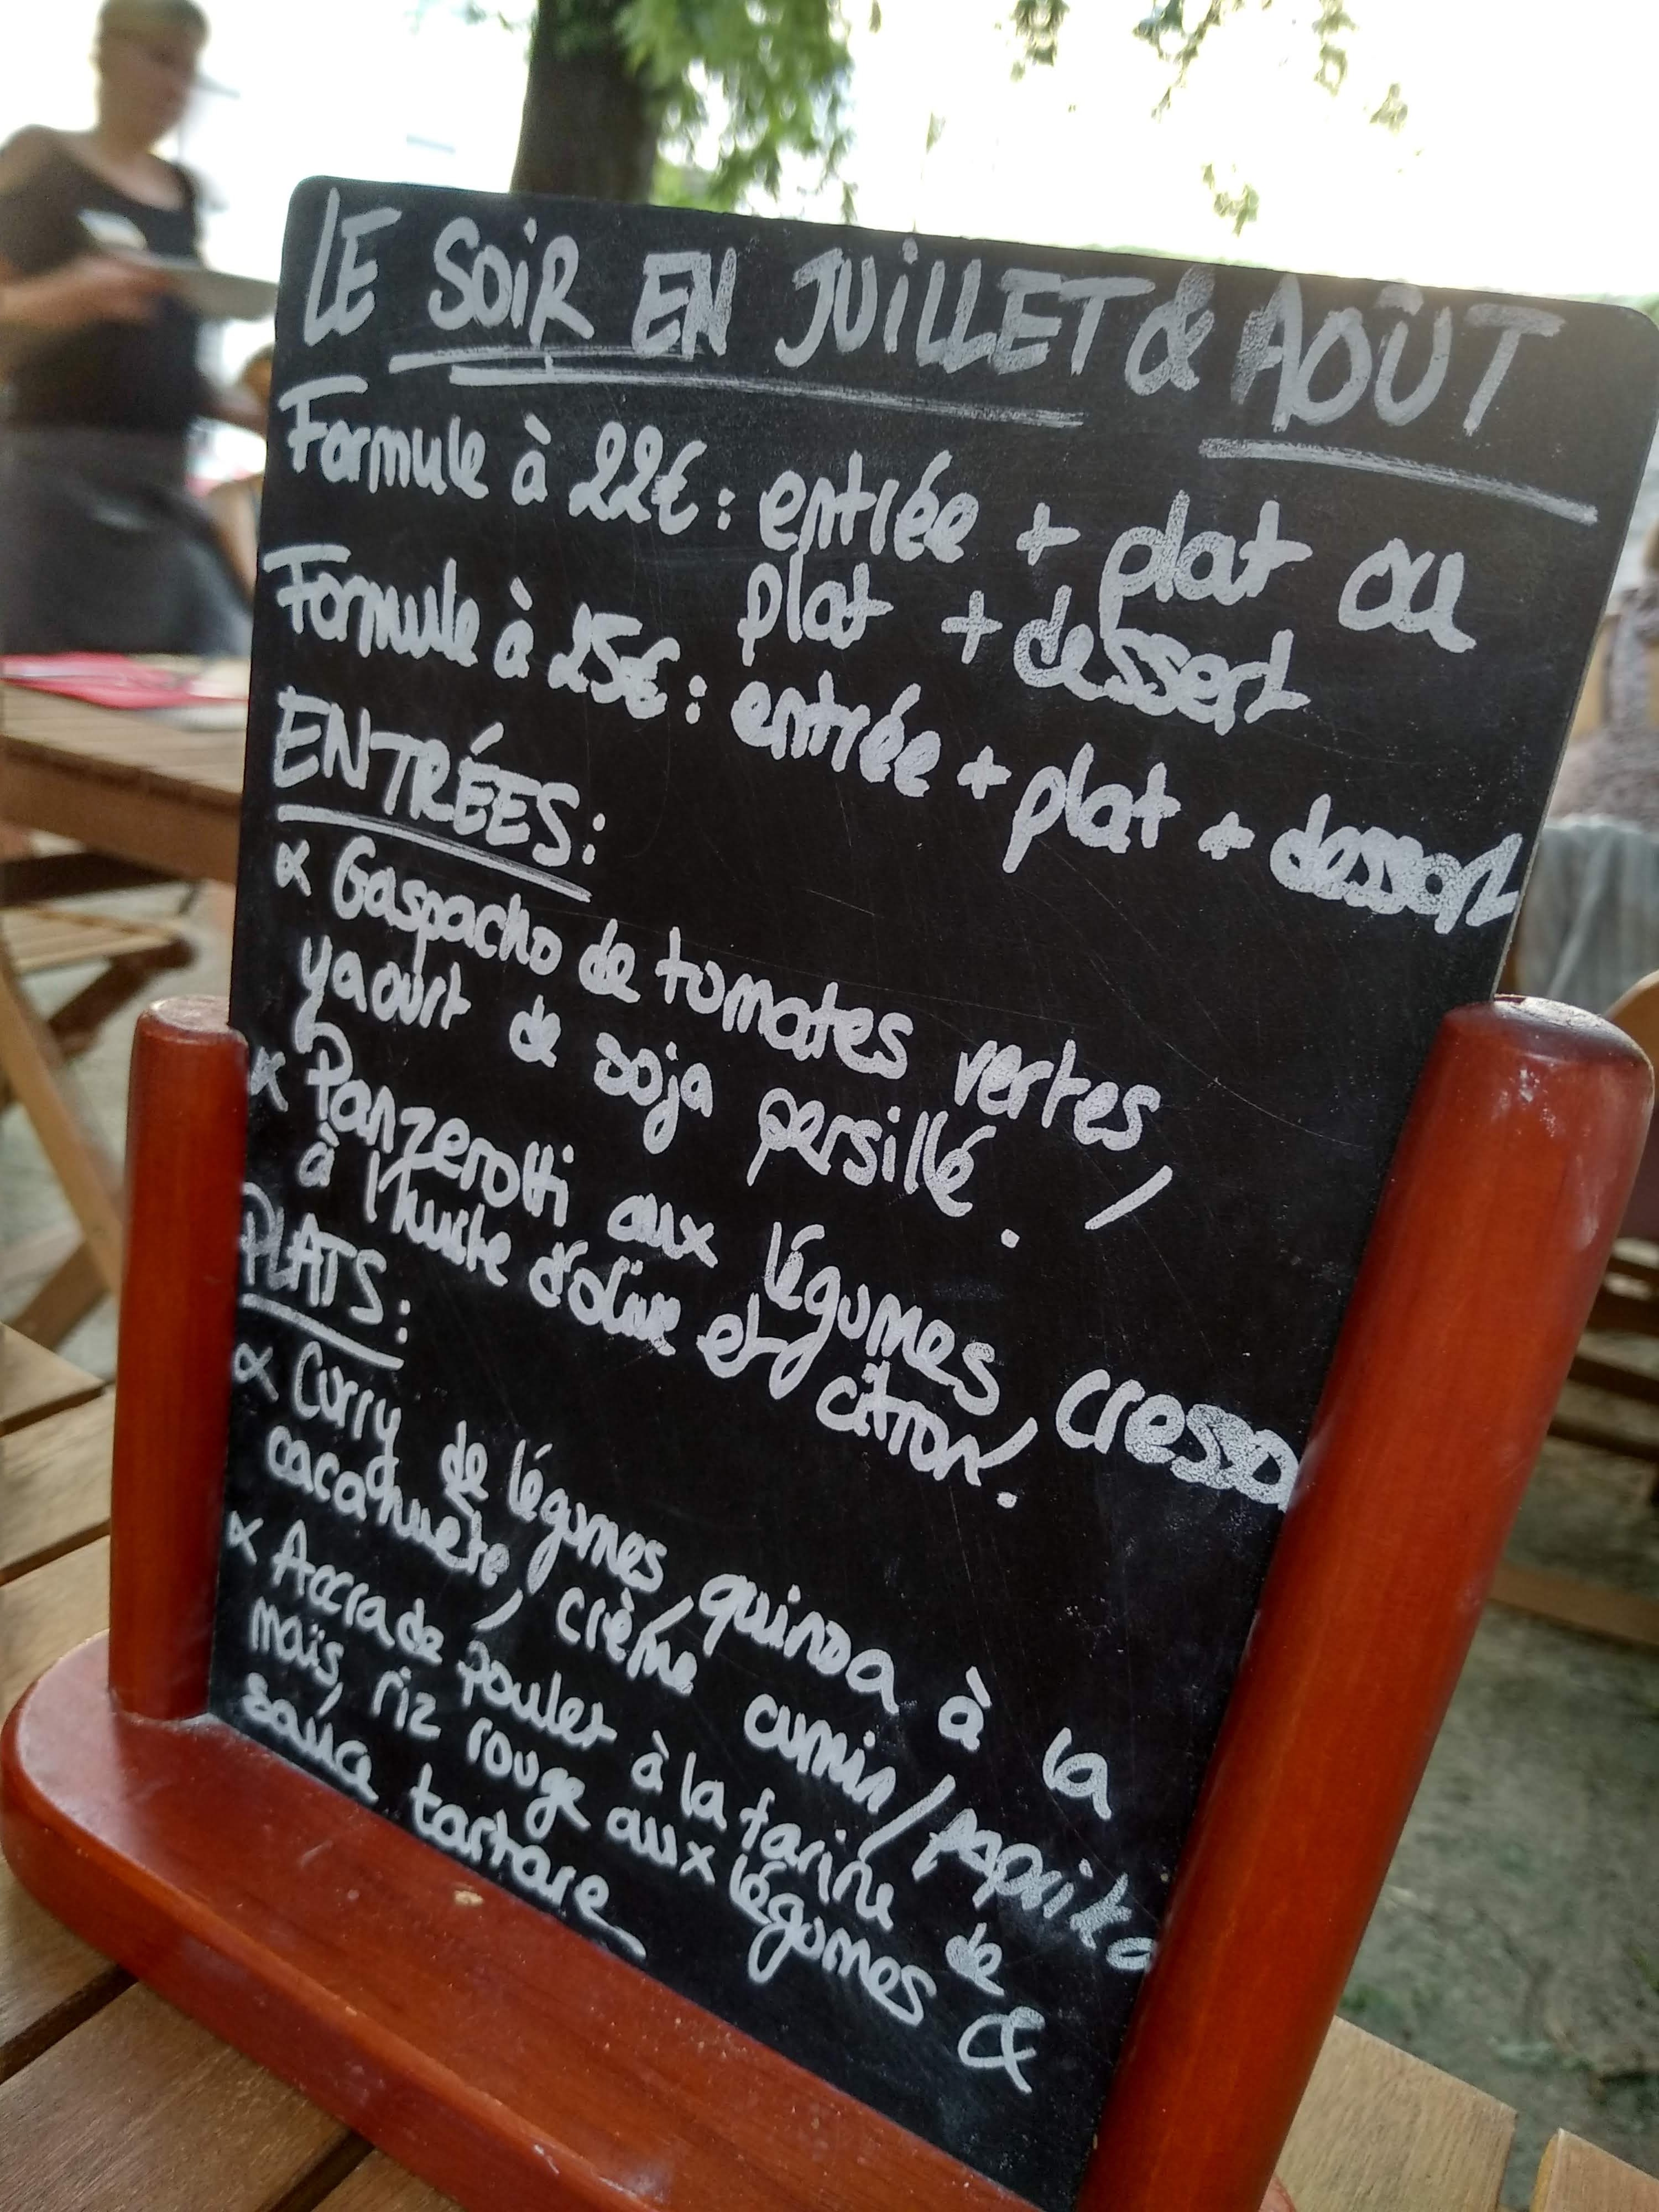 LE SOiR EN JUiLLET & AOÛT
Formule à 22€ : entrée + plat ou
plat + dessert
Formule à 25€ : entrée + plat + dessert
ENTRÉES :
∝ Gaspacho de tomates vertes,
yaourt de soja persillé.
∝ Panzerotti aux légumes, cresso
à l'huile d'olive et citron.
PLATS :
∝ Curry de légumes, quinoa à la
cacahuète, crème cumin/paprika
∝ Accra de poulet à la farine de
maïs, riz rouge aux légumes &
sauce tartare